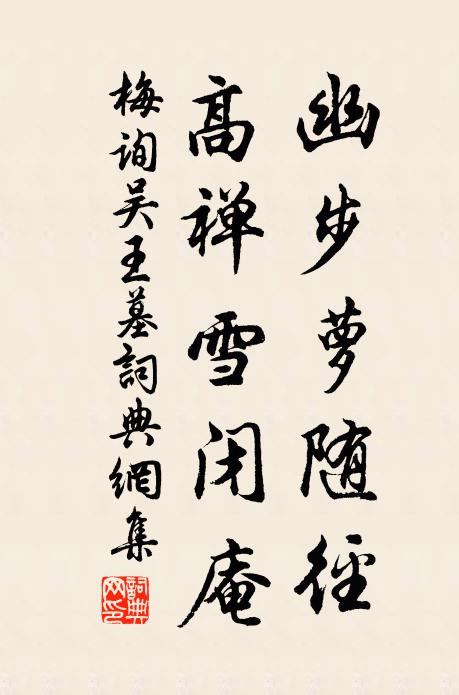 幽步萝随徑
高禅雪闭庵
梅詢吴王墓詞典網集
詞典网印